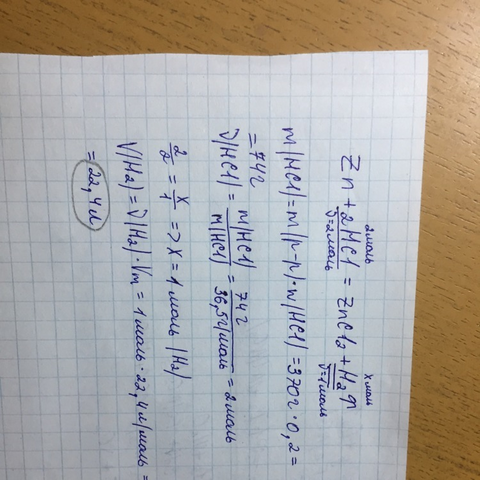 2 моль x моль
Zn + 2HCl = ZnCl2 + H2↑
ν=2моль ν=1моль
m(HCl) = m(р-р)·w(HCl) = 370г·0,2 =
= 74г
ν(HCl) = m(HCl)/M(HCl) = 74г/36,5г/моль = 2моль
2/2 = x/1 => x = 1 моль (H2)
V(H2) = ν(H2)·Vm = 1 моль·22,4л/моль =
= 22,4л